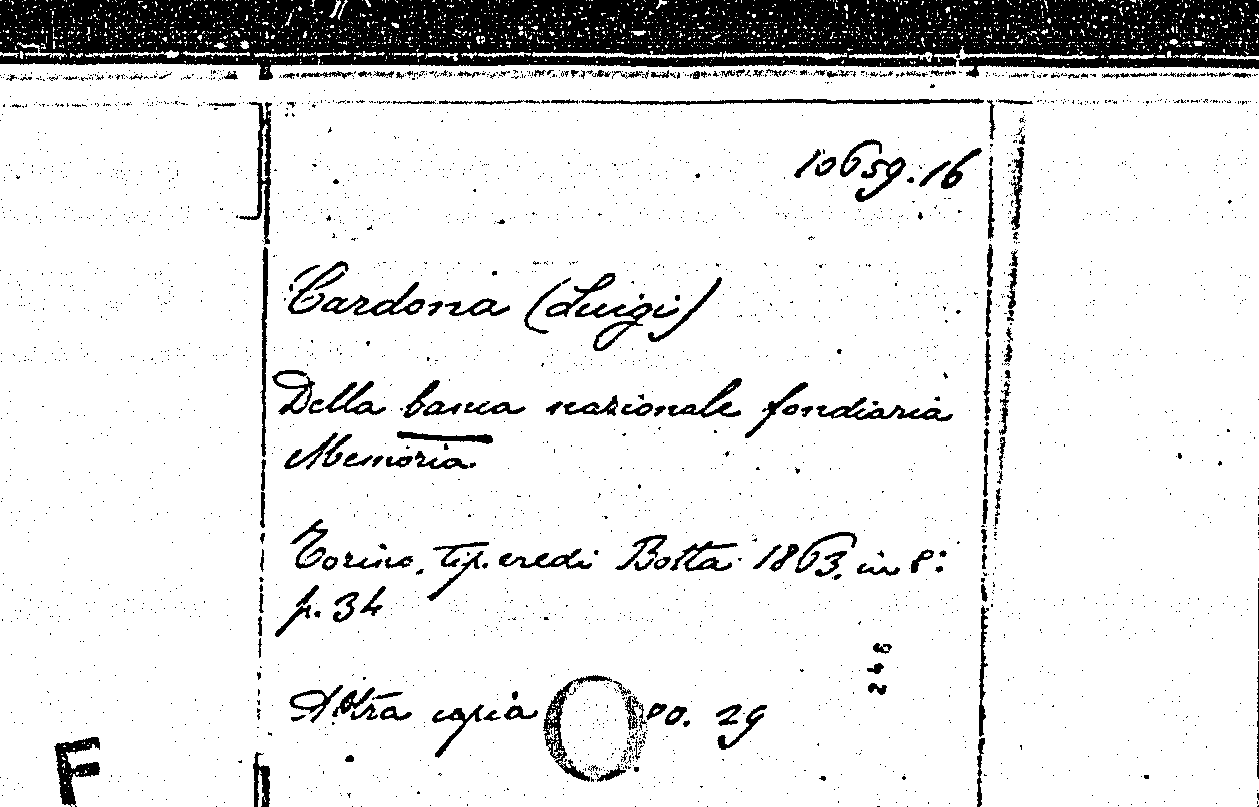 10659.16
Cardona (Luigi)
Della banca nazionale fondiaria
Memoria
Torino, tip. eredi Botta 1863. in 8:
p. 34
246
Altra copia 00. 29
F